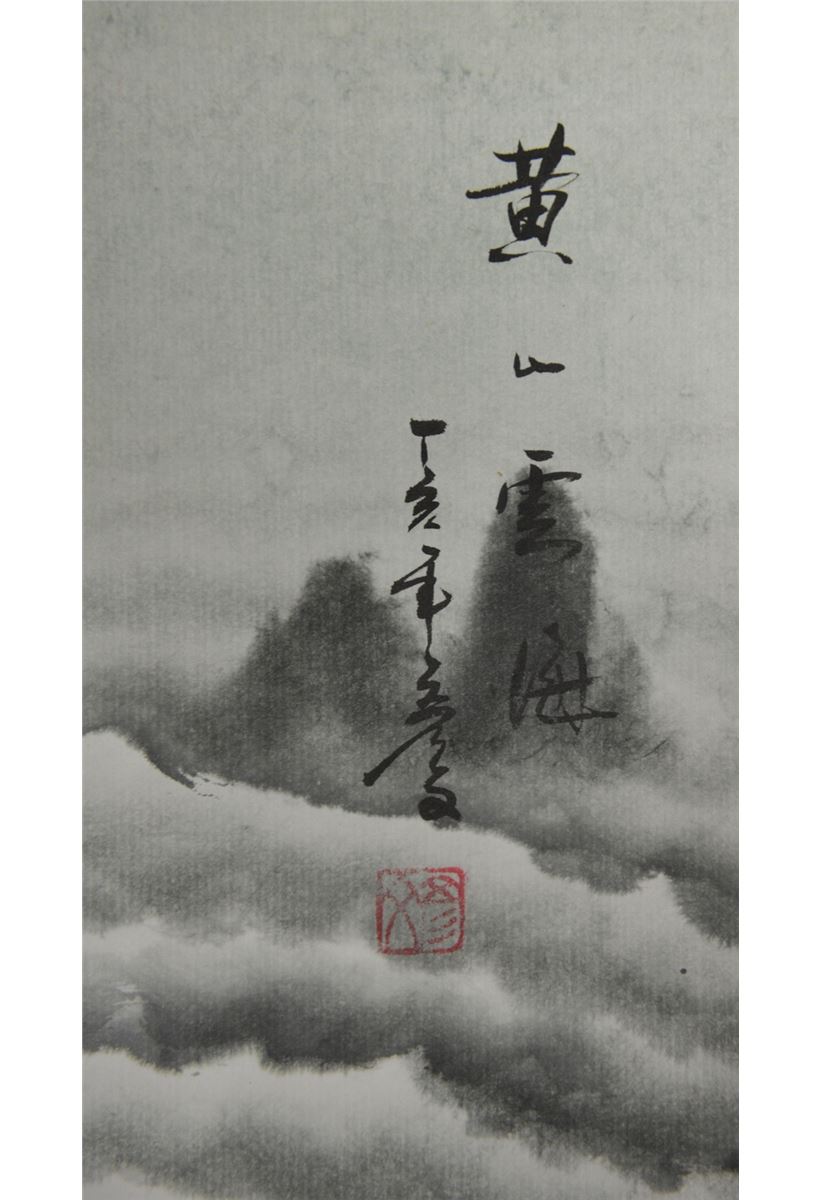 黄山雲海
丁亥年